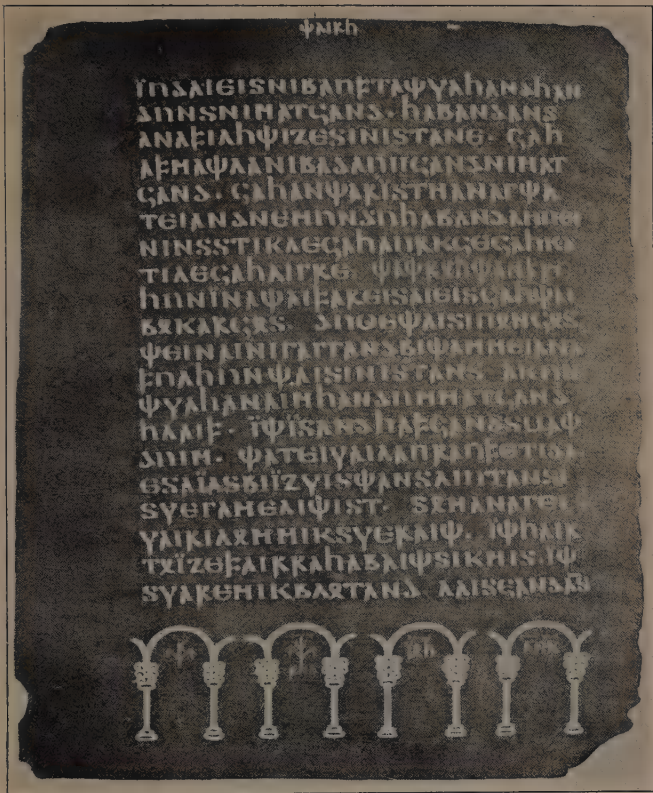 𐌸𐌰𐌹𐍂𐌷
𐌹̈𐌿𐌳𐌰𐌹𐌴𐌹𐍃𐌽𐌹𐌱𐌰𐌿𐍆𐍄𐌰𐌸𐍅𐌰𐌷𐌰𐌽𐌳𐌷𐌰𐌽
𐌳𐌿𐌽𐍃𐌽𐌹𐌼𐌰𐍄𐌾𐌰𐌽𐌳· 𐌷𐌰𐌱𐌰𐌽𐌳𐌰𐌽𐍃
𐌰𐌽𐌰𐍆𐌹𐌻𐌷𐌸𐌹𐌶𐌴𐍃𐌹𐌽𐌹𐍃𐍄𐌰𐌽𐌴· 𐌾𐌰𐌷
𐌰𐍆𐌼𐌰𐌸𐌻𐌰𐌽𐌹𐌱𐌰𐌳𐌰𐌿𐍀𐌾𐌰𐌽𐌳𐌽𐌹𐌼𐌰𐍄
𐌾𐌰𐌽𐌳· 𐌾𐌰𐌷𐌰𐌽𐌸𐌰𐍂𐌹̈𐍃𐍄𐌼𐌰𐌽𐌰𐌲𐌸𐌰
𐍄𐌴𐌹𐌰𐌽𐌳𐌽𐌴𐌼𐌿𐌽𐌳𐌿𐌷𐌰𐌱𐌰𐌽𐌳𐌰𐌿𐍀𐌴𐌹
𐌽𐌹𐌽𐍃𐍃𐍄𐌹𐌺𐌻𐌴𐌾𐌰𐌷𐌰𐌿𐍂𐌺𐌾𐌴𐌾𐌰𐌷𐌺𐌰
𐍄𐌹𐌻𐌴𐌾𐌰𐌷𐌻𐌹𐌲𐍂𐌴· 𐌸𐌰𐌸𐍂𐍉𐌷𐌸𐌰𐌽𐍆𐍂𐌴
𐌷𐌿𐌽𐌹̈𐌽𐌰𐌸𐌰𐌹𐍆𐌰𐍂𐌴𐌹𐍃𐌰𐌹𐌴𐌹𐍃𐌾𐌰𐌷𐌸𐌰𐌹
𐌱𐍉𐌺𐌰𐍂𐌾𐍉𐍃· 𐌳𐌿𐍈𐌴𐌸𐌰𐌹𐍃𐌹𐍀𐍉𐌽𐌾𐍉𐍃
𐌸𐌴𐌹𐌽𐌰𐌹𐌽𐌹𐌲𐌰𐌲𐌲𐌰𐌽𐌳𐌱𐌹𐌸𐌰𐌼𐌼𐌴𐌹𐌰𐌽𐌰
𐍆𐌿𐌻𐌷𐌿𐌽𐌸𐌰𐌹𐍃𐌹𐌽𐌹𐍃𐍄𐌰𐌽𐍃 𐌰𐌺𐌿𐌽
𐌸𐍅𐌰𐌷𐌰𐌽𐌰𐌹𐌼𐌷𐌰𐌽𐌳𐌿𐌼𐌼𐌰𐍄𐌾𐌰𐌽𐌳
𐌷𐌻𐌰𐌹𐍆· 𐌹̈𐌸𐌹𐍃𐌰𐌽𐌳𐌷𐌰𐍆𐌾𐌰𐌽𐌳𐍃𐌵𐌰𐌸
𐌳𐌿𐌹𐌼· 𐌸𐌰𐍄𐌴𐌹𐍅𐌰𐌹𐌻𐌰𐍀𐍂𐌰𐌿𐍆𐌴𐍄𐌹𐌳𐌰
𐌴𐍃𐌰𐌹̈𐌰𐍃𐌱𐌹𐌹̈𐌶𐍅𐌹𐍃𐌸𐌰𐌽𐍃𐌻𐌹𐌿𐍄𐌰𐌽𐍃
𐍃𐍅𐌴𐌲𐌰𐌼𐌴𐌻𐌹𐌸𐌹𐍃𐍄· 𐍃𐍉𐌼𐌰𐌽𐌰𐌲𐌴𐌹
𐍅𐌰𐌹𐍂𐌹𐌻𐍉𐌼𐌼𐌹𐌺𐍃𐍅𐌴𐍂𐌰𐌹𐌸· 𐌹̈𐌸𐌷𐌰𐌹𐍂
𐍄𐍉𐌹̈𐌶𐌴𐍆𐌰𐌹𐍂𐍂𐌰𐌷𐌰𐌱𐌰𐌹𐌸𐍃𐌹𐌺𐌼𐌹𐍃· 𐌹̈𐌸
𐍃𐍅𐌰𐍂𐌴𐌼𐌹𐌺𐌱𐌻𐍉𐍄𐌰𐌽𐌳 𐌻𐌰𐌹𐍃𐌾𐌰𐌽𐌳𐌰𐌽𐍃